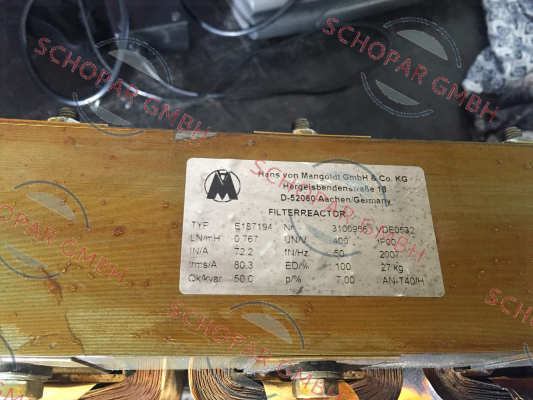 Hans von Mangoldt GmbH & Co. KG
Hergelsbendenstraße 18
D-52080 Aachen/Germany
FILTERREACTOR
TYP E187194 Nr. 3100956 VDE0532
LN/mH 0.767 UN/V 400 IP00
IN/A 72.2 fN/Hz 50 2007
Irms/A 80.3 ED/% 100 27 kg
Qk/kvar 50.0 p/% 7,00 AN-T40/H
SCHOPAR GMBH
SCHOPAR GMBH
SCHOPAR GMBH
SCHOPAR GMBH
SCHOPAR GMBH